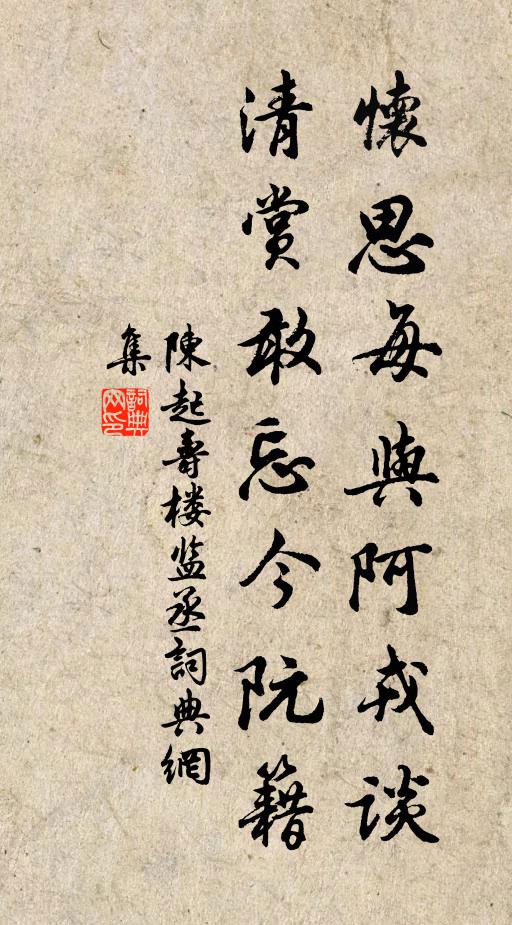 懷思每與阿戎談
清賞敢忘今阮籍
陳起壽楼监丞詞典網
集
詞典
网印